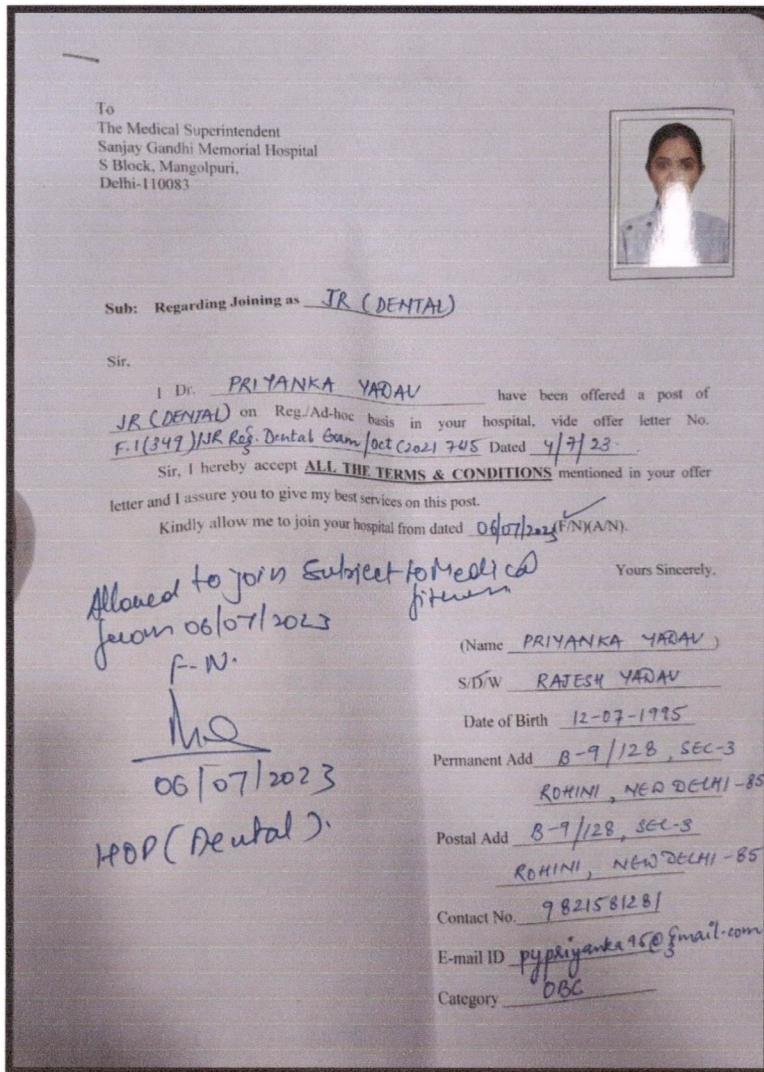 To
The Medical Superintendent
Sanjay Gandhi Memorial Hospital
S Block, Mangolpuri,
Delhi-110083
Sub: Regarding Joining as JR (DENTAL)
Sir,
I Dr. PRIYANKA YADAV have been offered a post of
JR (DENTAL) on Reg./Ad-hoc basis in your hospital, vide offer letter No.
F.1(349)/JR Reg. Dental Exam/Oct (2021 745 Dated 4/7/23.
Sir, I hereby accept ALL THE TERMS & CONDITIONS mentioned in your offer
letter and I assure you to give my best services on this post.
Kindly allow me to join your hospital from dated 06/07/2023 (F/N)(A/N).
Yours Sincerely,
Allowed to join Subject to Medical
fitness
from 06/07/2023
F-N.
06/07/2023
HOD (Dental).
(Name PRIYANKA YADAV)
S/D/W RAJESH YADAV
Date of Birth 12-07-1995
Permanent Add B-9/128, SEC-3
ROHINI, NEW DELHI-85
Postal Add B-9/128, SEC-3
ROHINI, NEW DELHI-85
Contact No. 9821581281
E-mail ID pypriyanka95@gmail.com
Category OBC